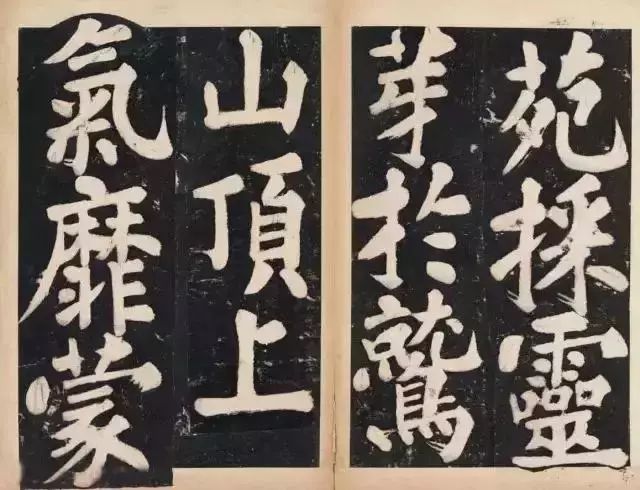 苑採靈
華於鷲
山頂上
氣靡蒙